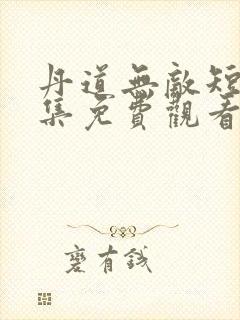 丹道無敵短
集免費觀看
寋有錢